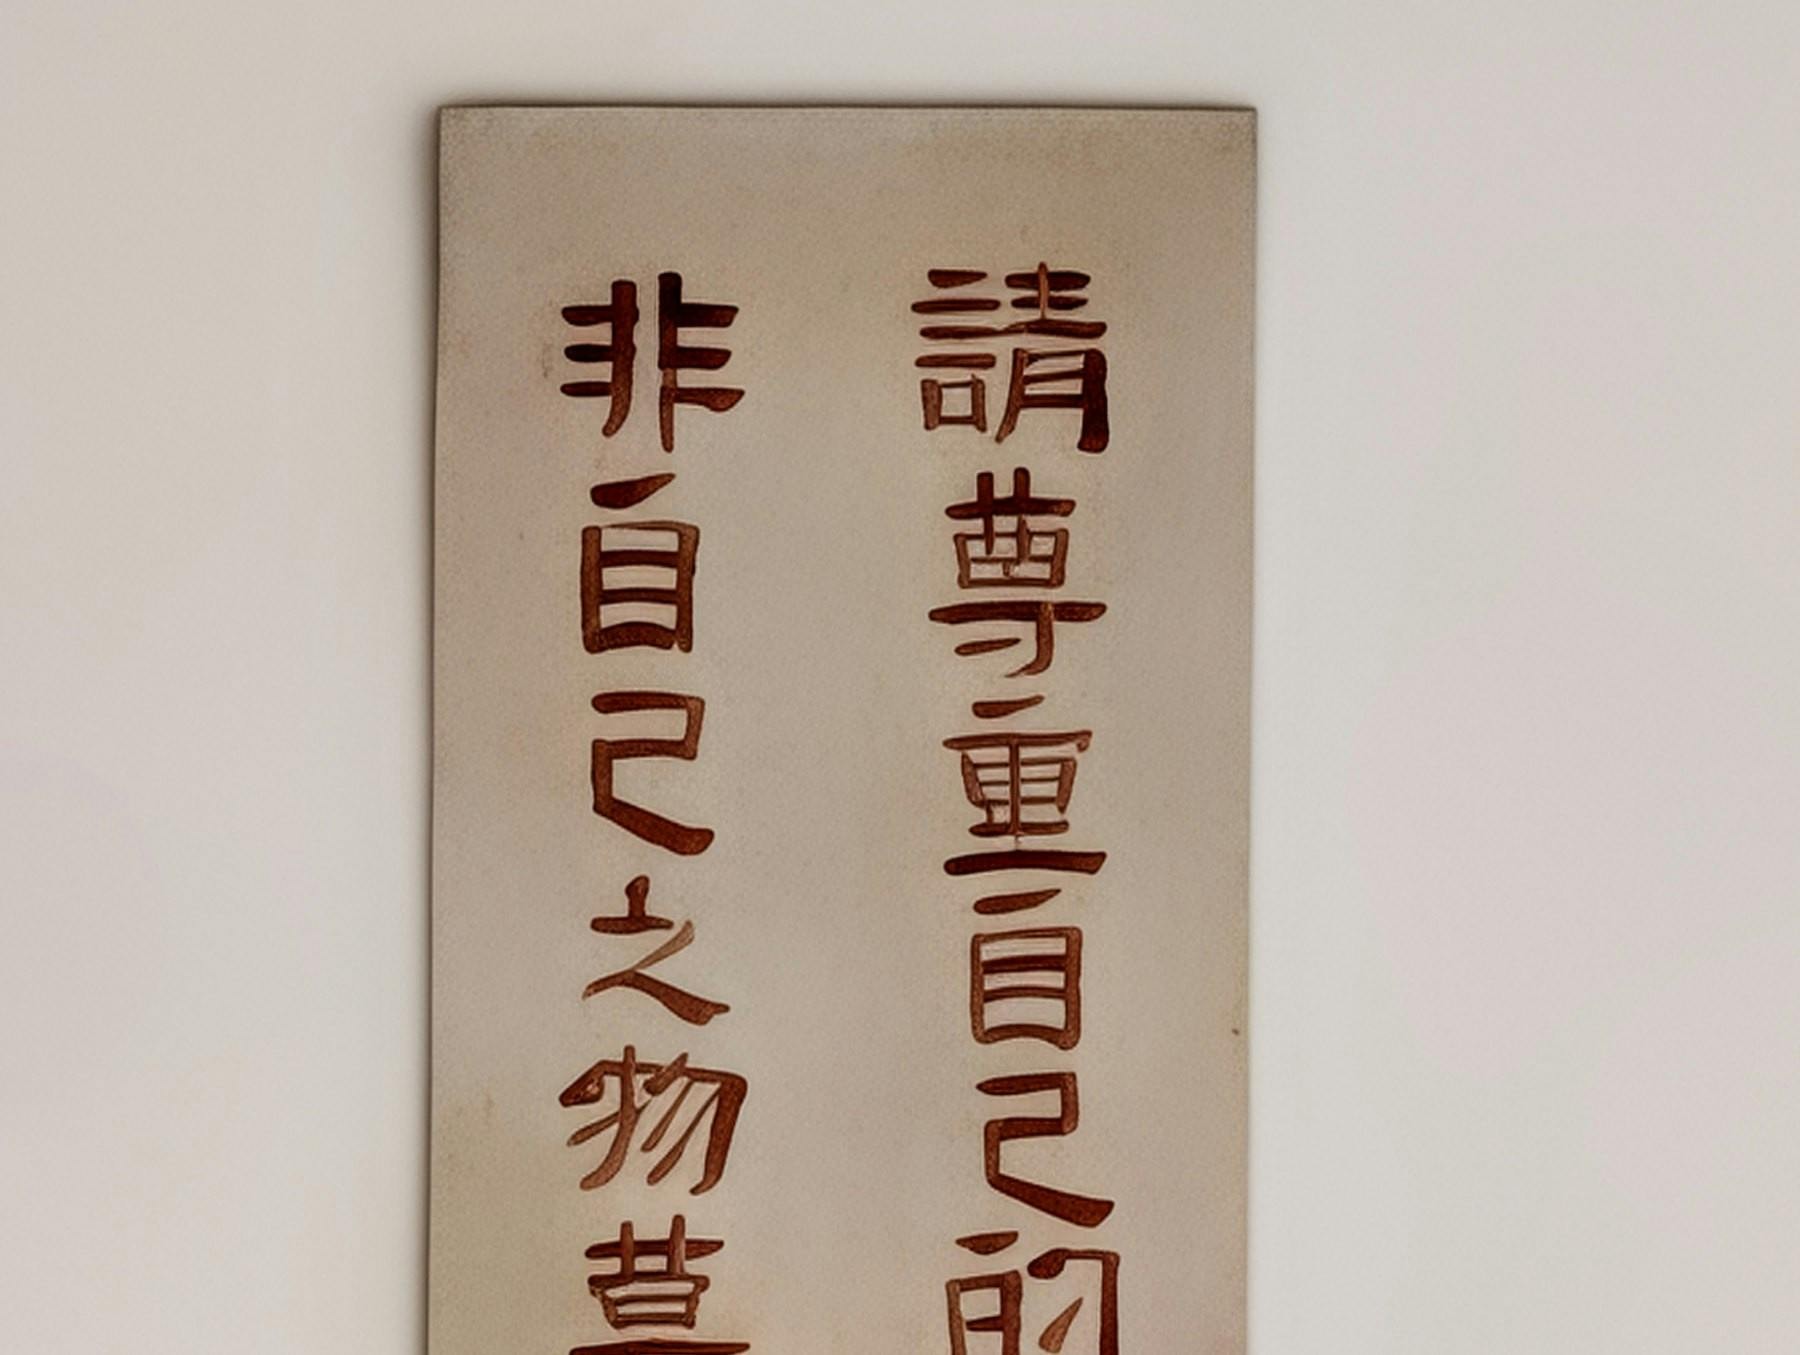 請尊重自己的
非自己之物